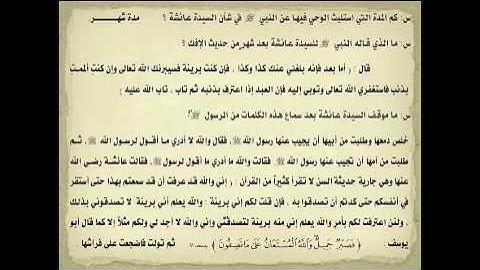 س: كم المدة التي استلبث الوحي فيها عن النبي ﷺ في شأن السيدة عائشة ؟ مدة شهـــر
س: ما الذي قاله النبي ﷺ للسيدة عائشة بعد شهر من حديث الإفك ؟
قال : ( أما بعد فإنه بلغني عنك كذا وكذا ، فإن كنت بريئة فسيبرئك الله تعالى وإن كنت ألممت
بذنب فاستغفري الله تعالى وتوبي إليه فإن العبد إذا اعترف بذنبه ثم تاب ، تاب الله عليه )
س: ما موقف السيدة عائشة بعد سماع هذه الكلمات من الرسول ﷺ؟
خلص دمعها وطلبت من أبيها أن يجيب عنها رسول الله ﷺ، فقال والله لا أدري ما أقول لرسول الله ﷺ، ثم
طلبت من أمها أن تجيب عنها رسول الله ﷺ، فقالت والله ما أدري ما أقول لرسول ﷺ، فقالت عائشة رضي الله
عنها وهي جارية حديثة السن لا تقرأ كثيراً من القرآن : ( إني والله قد عرفت أن قد سمعتم بهذا حتى أستقر
في أنفسكم حتى كدتم أن تصدقوا به ، فإن قلت لكم إني بريئة والله يعلم إني بريئة لا تصدقوني بذلك
، ولئن اعترفت لكم بأمر والله يعلم إني منه بريئة لتصدقني وإني والله لا أجد لي ولكم مثلاً إلا كما قال أبو
يوسف : ﴿ فَصَبْرٌ جَمِيلٌ وَاللَّهُ الْمُسْتَعَانُ عَلَىٰ مَا تَصِفُونَ ﴾ ثم تولت فاضجعت على فراشها